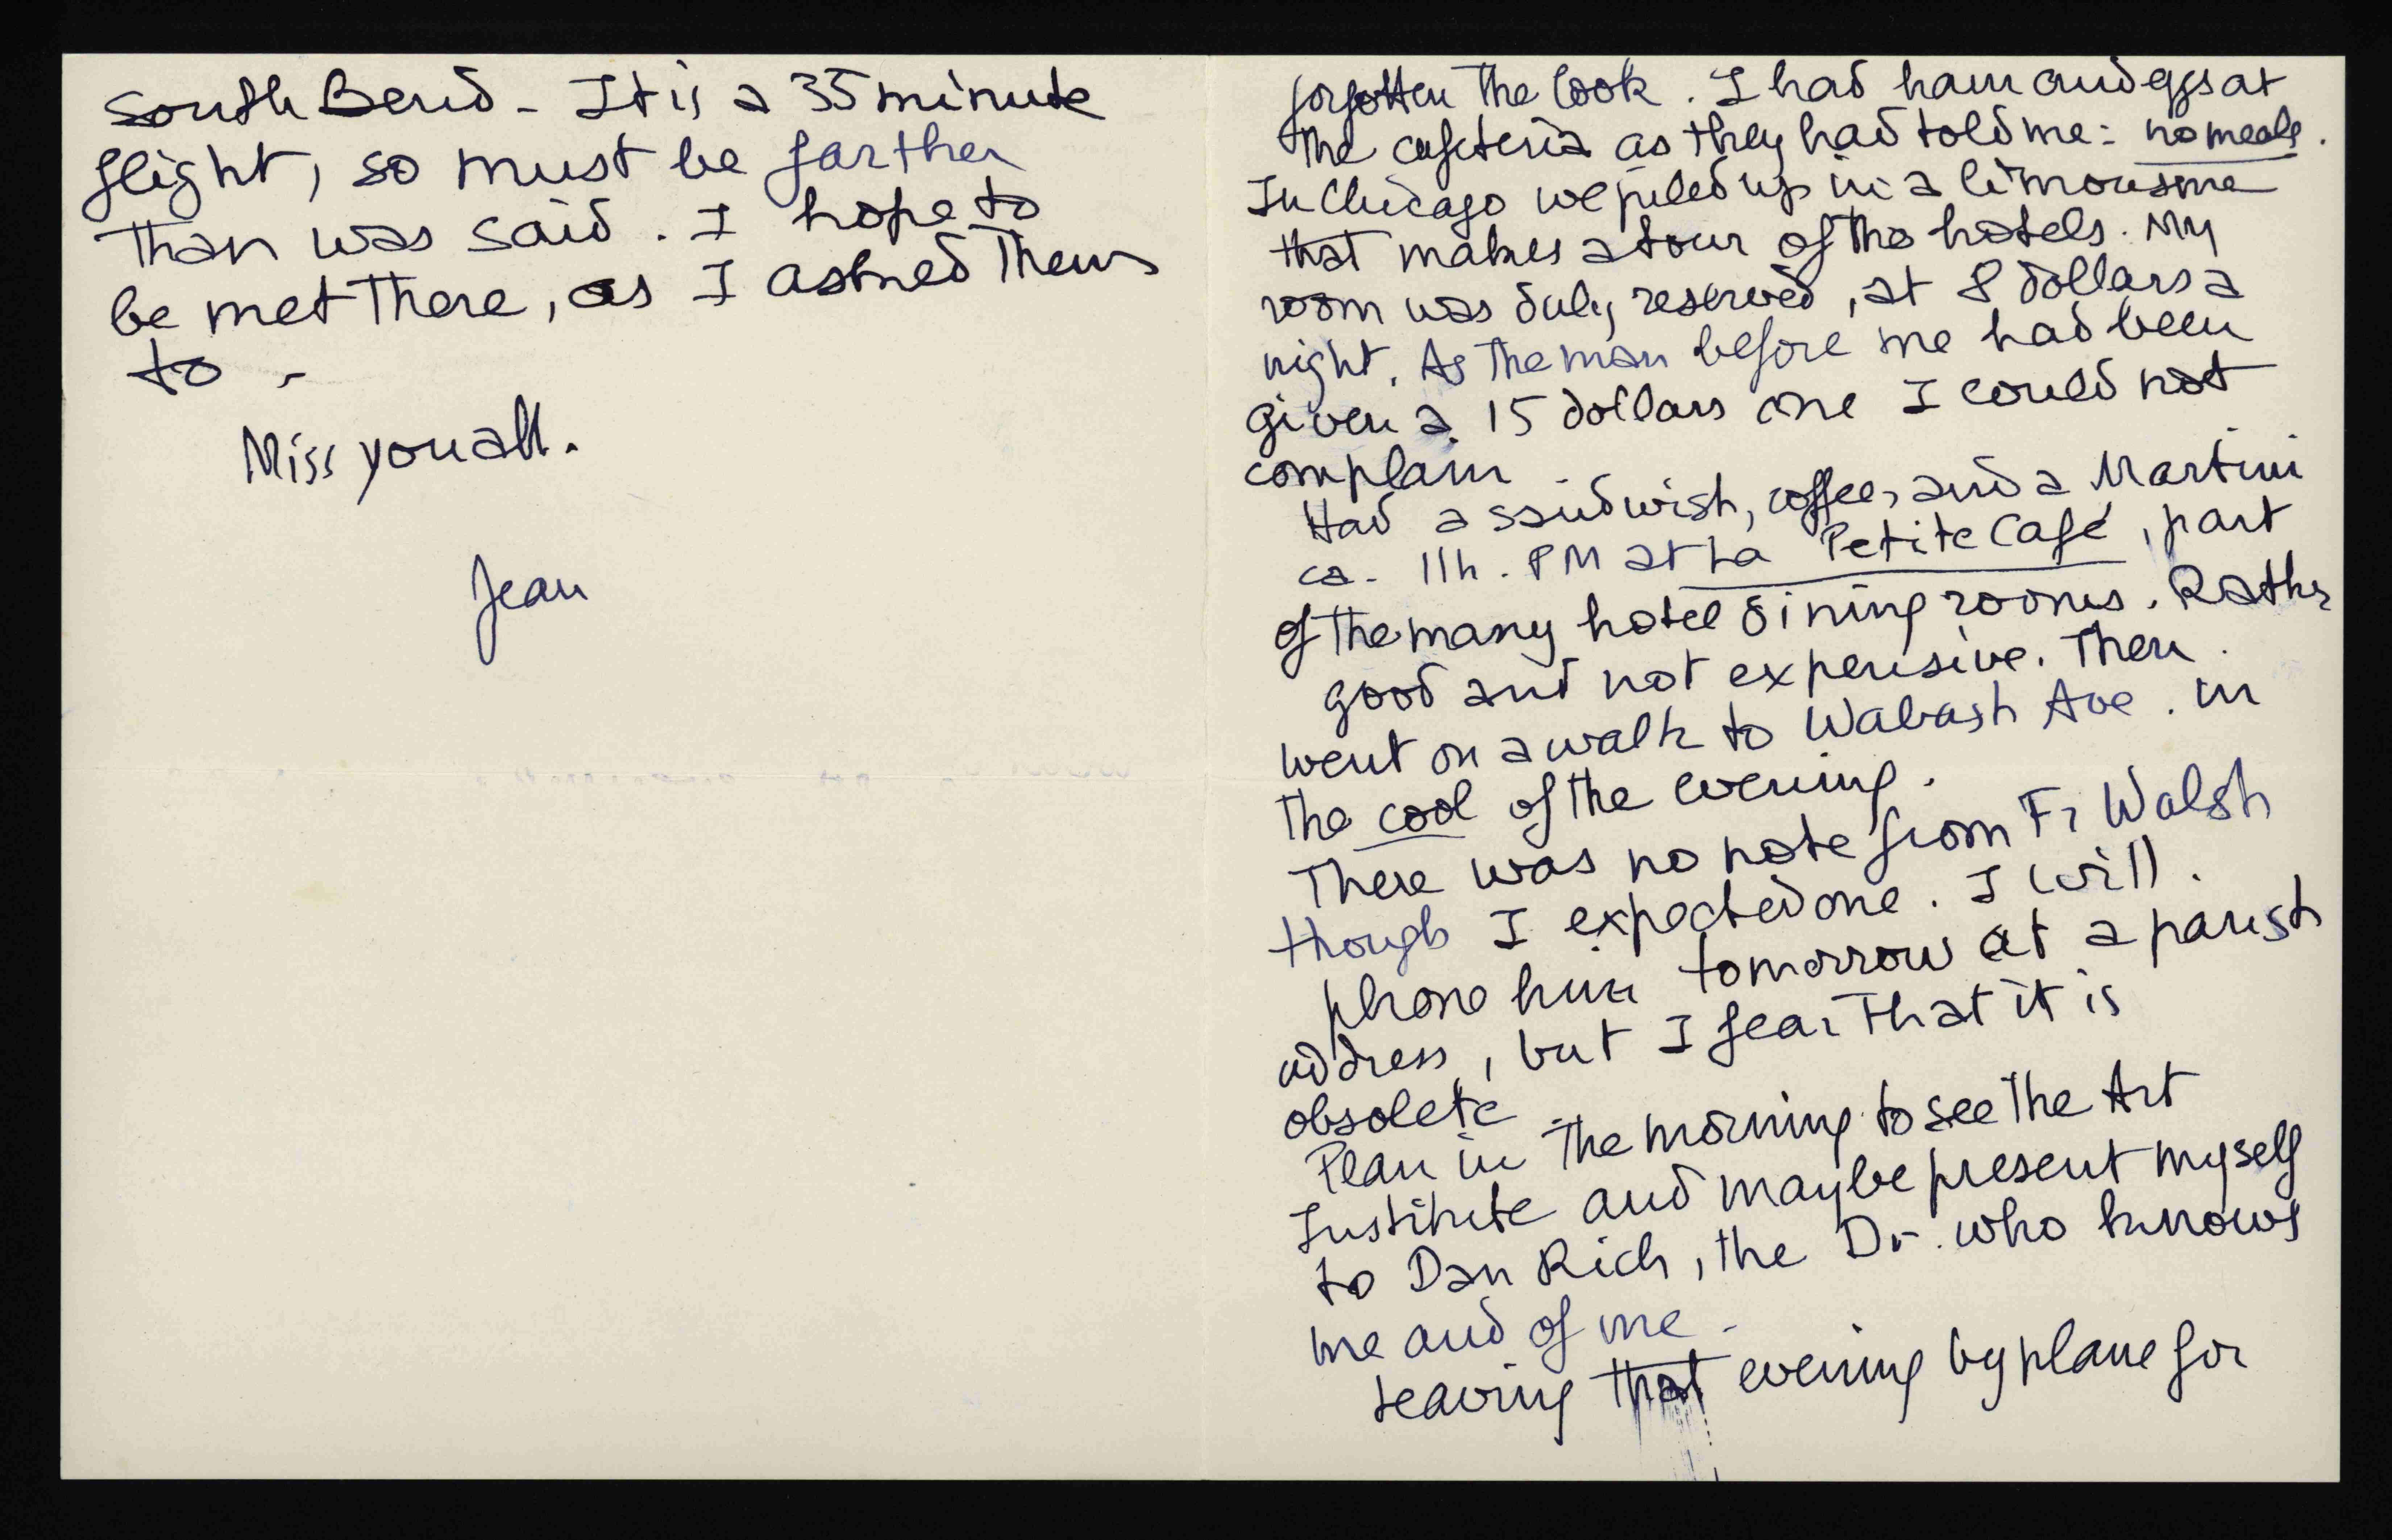 forgotten the look. I had ham and eggs at
the cafeteria as they had told me: no meals.
In Chicago we piled up in a limousine
that makes a tour of the hotels. My
room was duly reserved, at 8 dollars a
night. As the man before me had been
given a 15 dollars one I could not
complain
Had a sandwish, coffee, and a Martini
ca. 11h. PM at La Petite Café, part
of the many hotel dining rooms. Rather
good and not expensive. Then
went on a walk to Wabash Ave. in
the cool of the evening.
There was no note from Fr Walsh
though I expected one. I will
phone him tomorrow at a parish
address, but I fear that it is
obsolete
Plan in the morning to see the Art
Institute and maybe present myself
to Dan Rich, the Dr. who knows
me and of me -
Leaving that evening by plane for
South Bend - It is a 35 minute
flight, so must be farther
than was said. I hope to
be met there, as I asked them
to -
Miss you all.
Jean